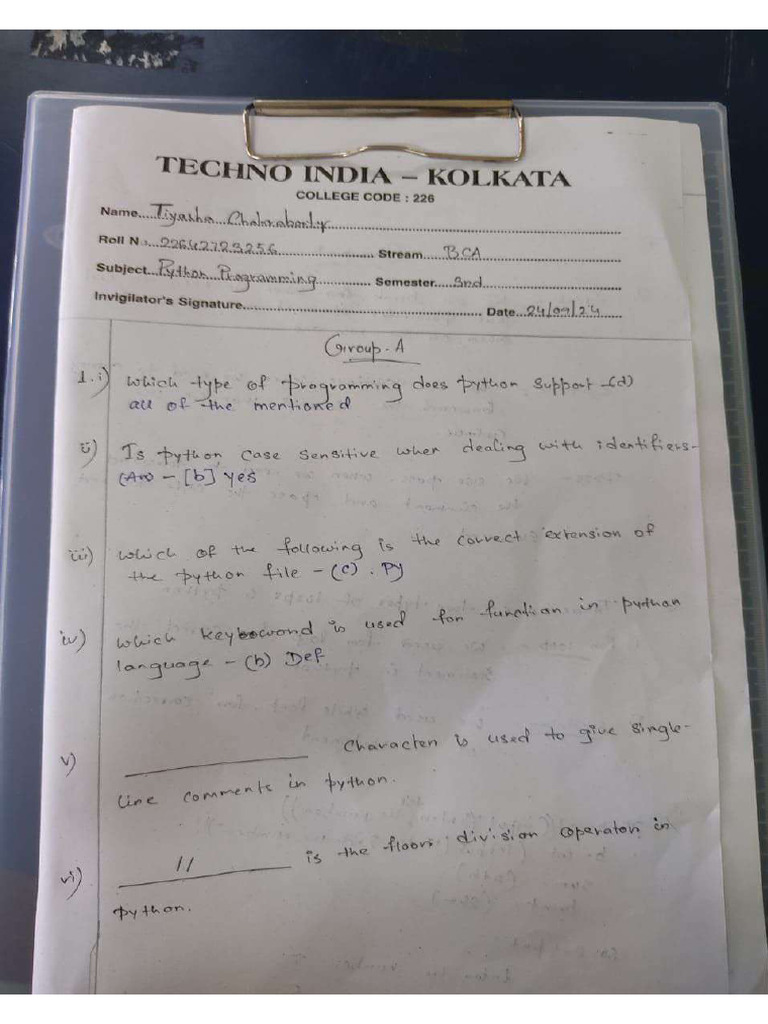 TECHNO INDIA – KOLKATA
COLLEGE CODE : 226
Name....Tiyasha Chakraborty
Roll No..22642723256 Stream....BCA
Subject...Python Programming Semester....3nd
Invigilator's Signature Date...24/09/24
Group-A
1.i) Which type of programming does python support -(d)
all of the mentioned
ii) Is python case sensitive when dealing with identifiers-
(An) - [b] yes
iii) Which of the following is the correct extension of
the python file - (c) .Py
iv) Which keyword is used for function in python
language - (b) Def
v) ____________ Character is used to give single-
line comments in python.
vi) ____//____ is the floor division operator in
python.